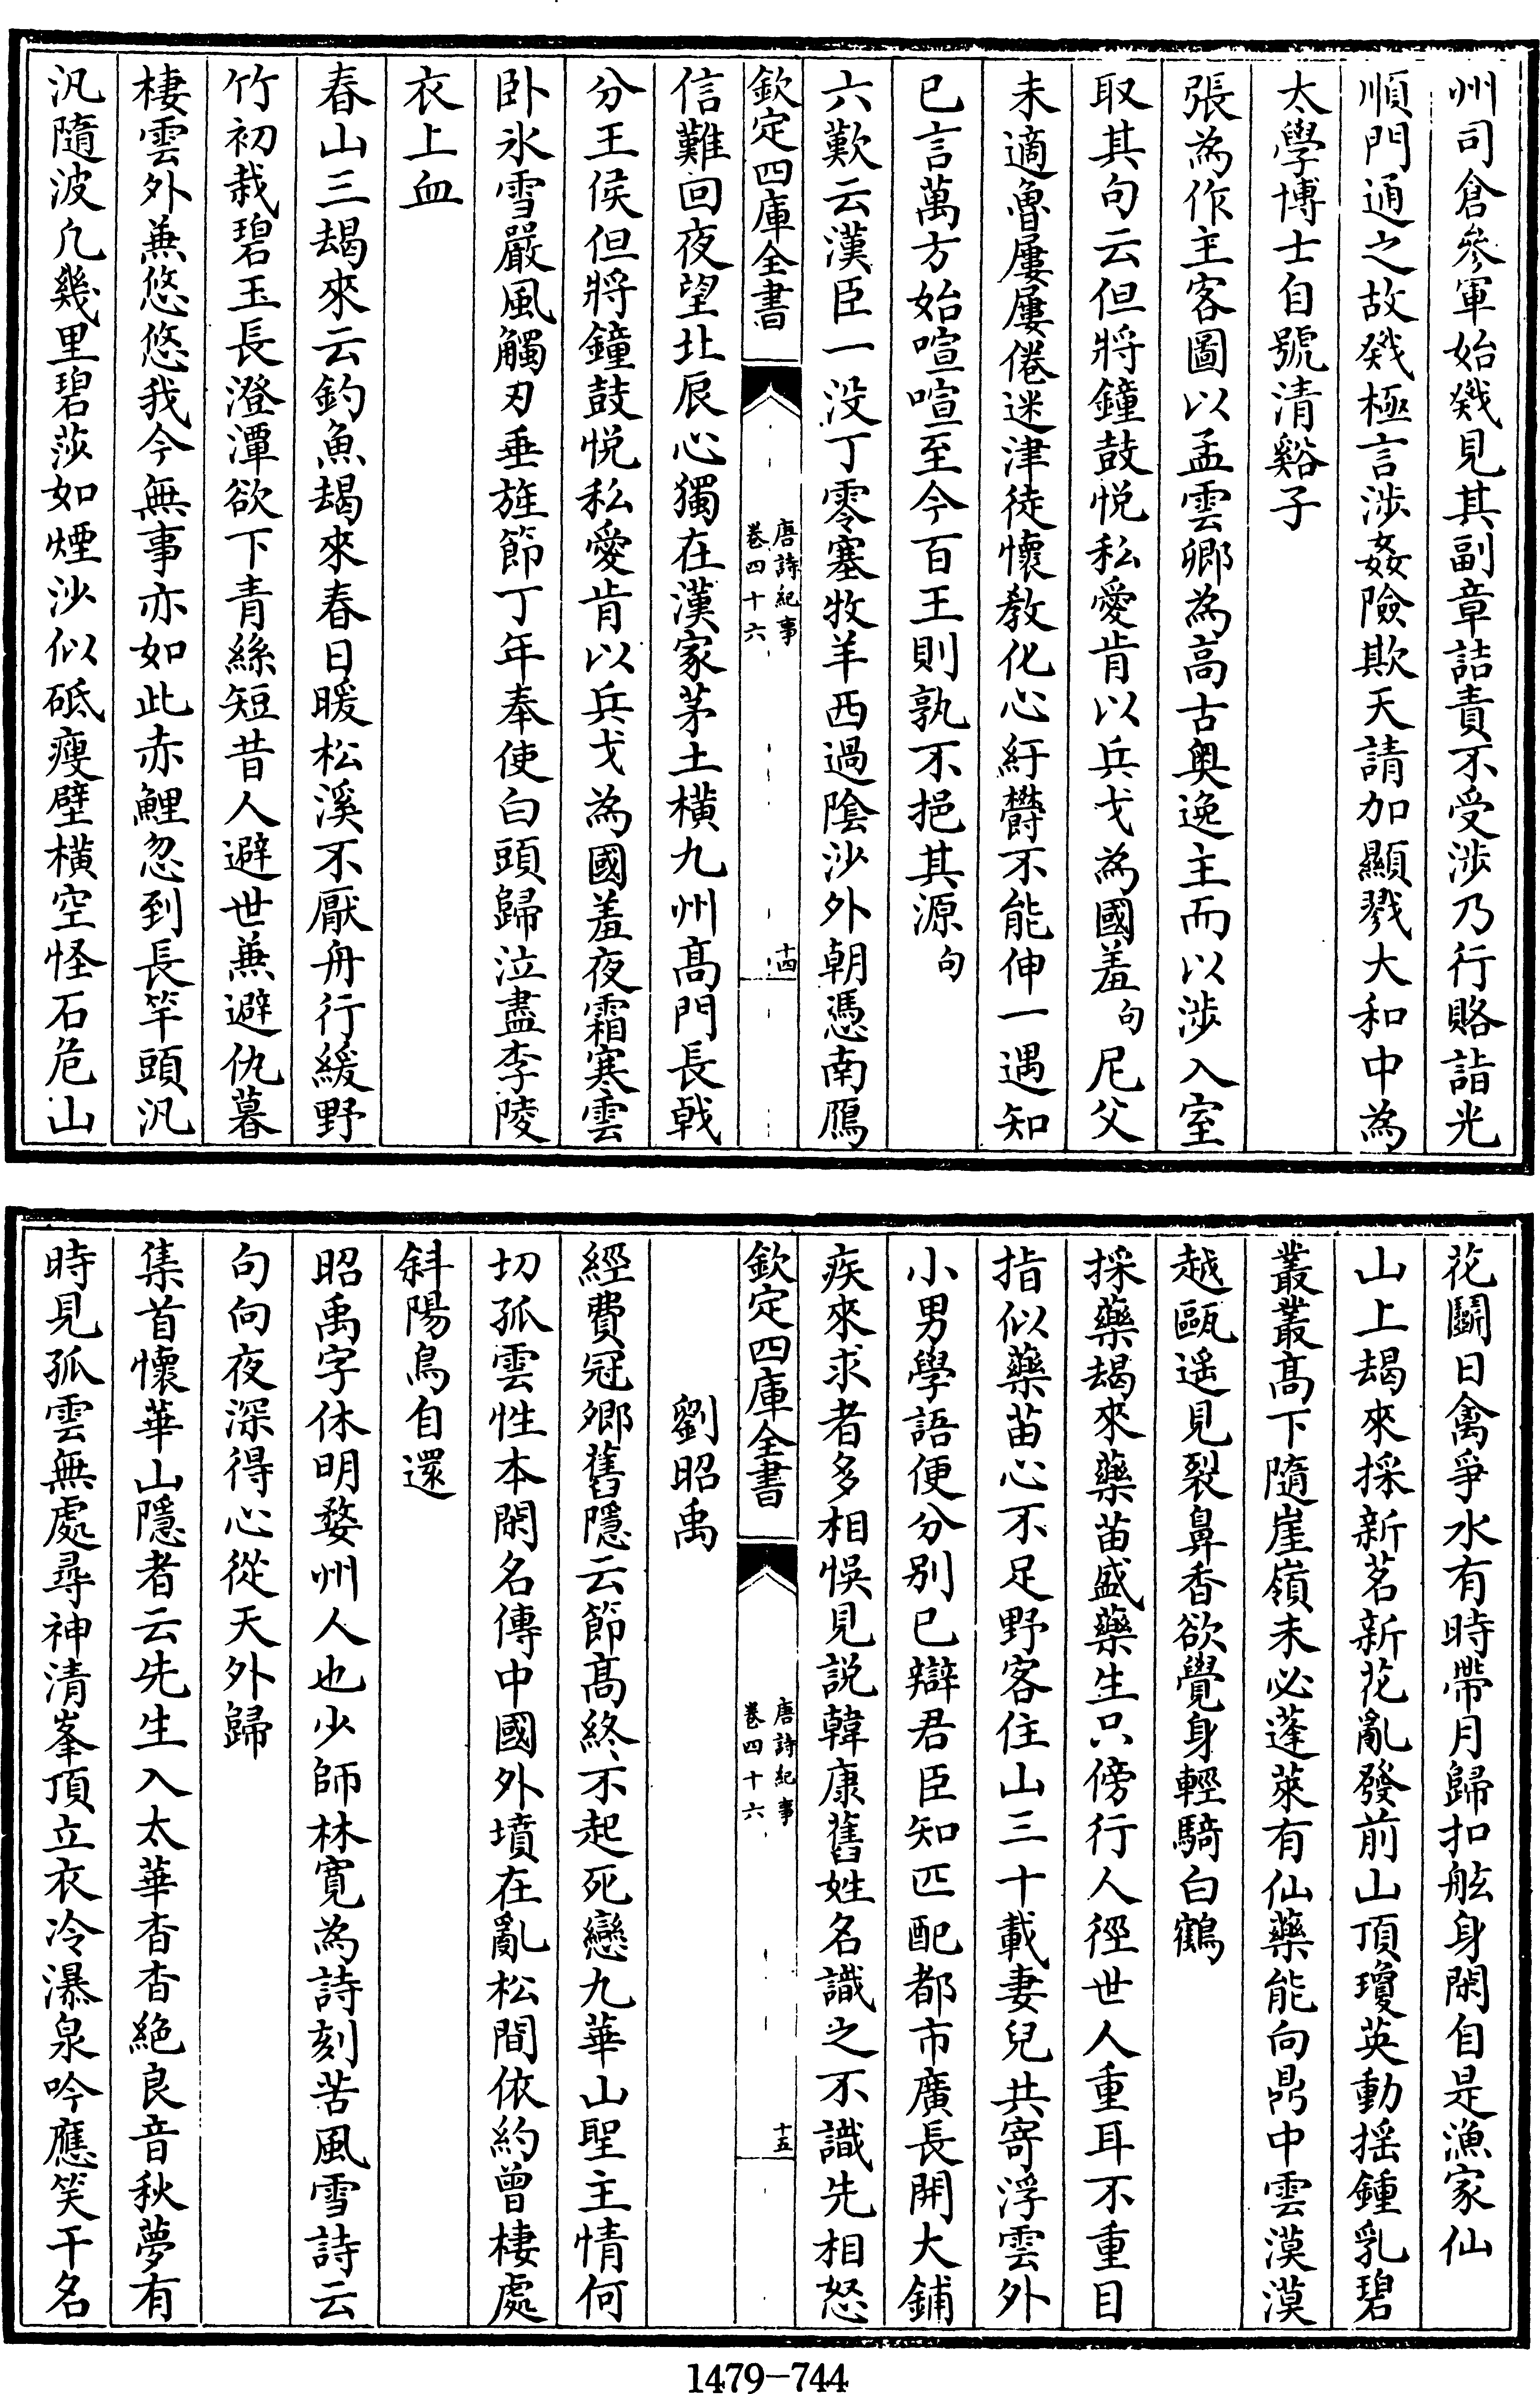 州司倉參軍始戣見其副章詰責不受涉乃行賂詣光
順門通之故戣極言涉姦險欺天請加顯戮大和中為
太學博士自號清谿子
張為作主客圖以孟雲卿為高古奥逸主而以涉入室
取其句云但將鐘鼓悦私愛肯以兵戈為國羞句尼父
未適魯屢屢倦迷津徒懷教化心紆欝不能伸一遇知
已言萬方始喧喧至今百王則孰不挹其源句
六歎云漢臣一没丁零塞牧羊西過陰沙外朝憑南鴈
欽定四庫全書
唐詩紀事
卷四十六
十四
信難回夜望北辰心獨在漢家茅土橫九州高門長戟
分王侯但將鐘鼓悦私愛肯以兵戈為國羞夜霜寒雲
卧氷雪嚴風觸刃垂旌節丁年奉使白頭歸泣盡李陵
衣上血
春山三朅來云釣魚朅來春日暖松溪不厭舟行緩野
竹初栽碧玉長澄潭欲下青絲短昔人避世兼避仇暮
棲雲外兼悠悠我今無事亦如此赤鯉忽到長竿頭汎
汎隨波凢幾里碧莎如煙沙似砥瘦壁橫空怪石危山
花鬭日禽爭水有時帶月歸扣舷身閑自是漁家仙
山上朅來採新茗新花亂發前山頂瓊英動摇鍾乳碧
叢叢高下隨崖嶺未必蓬萊有仙藥能向鼎中雲漠漠
越甌遥見裂鼻香欲覺身輕騎白鶴
採藥朅來藥苗盛藥生只傍行人徑世人重耳不重目
指似藥苗心不足野客住山三十載妻兒共寄浮雲外
小男學語便分别已辯君臣知匹配都市廣長開大鋪
疾來求者多相悞見説韓康舊姓名識之不識先相怒
欽定四庫全書
唐詩紀事
卷四十六
十五
劉昭禹
經費冠卿舊隱云節高終不起死戀九華山聖主情何
切孤雲性本閑名傳中國外墳在亂松間依約曾棲處
斜陽鳥自還
昭禹字休明婺州人也少師林寛為詩刻苦風雪詩云
句向夜深得心從天外歸
集首懷華山隱者云先生入太華杳杳絶良音秋夢有
時見孤雲無處尋神清峯頂立衣冷瀑泉吟應笑干名
1479-744